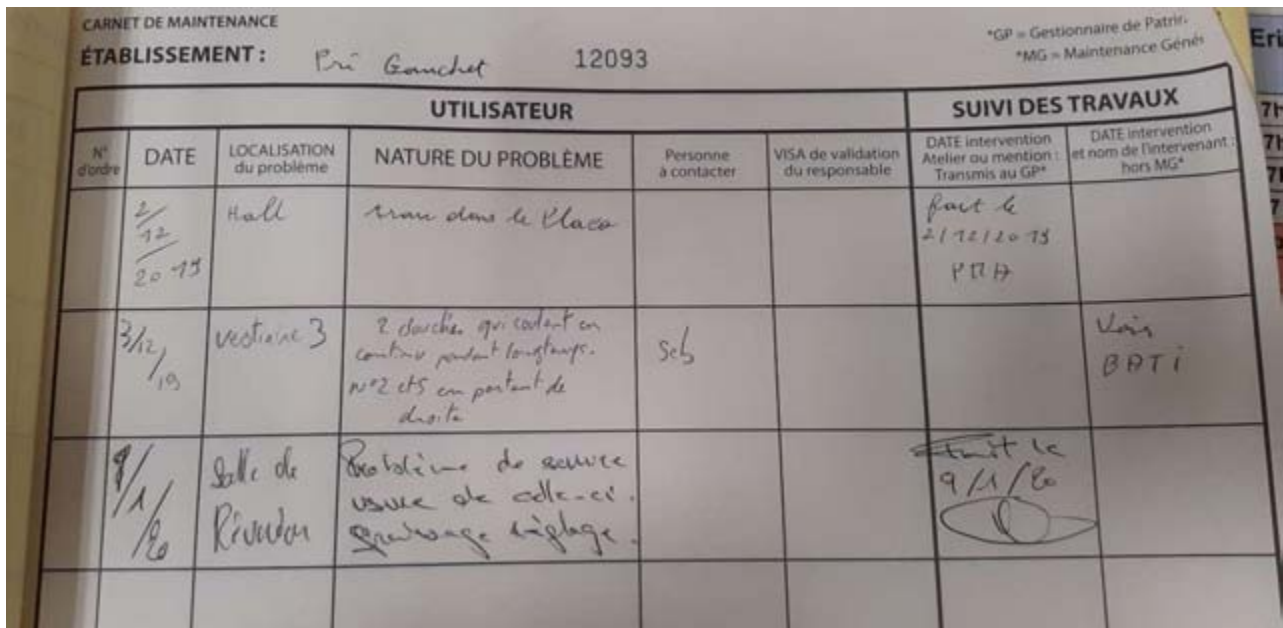 CARNET DE MAINTENANCE
*GP = Gestionnaire de Patri
*MG = Maintenance Géné
ÉTABLISSEMENT : Pré Gauchet 12093
Eri
UTILISATEUR
SUIVI DES TRAVAUX
N° d'ordre
DATE
LOCALISATION
du problème
NATURE DU PROBLÈME
Personne
à contacter
VISA de validation
du responsable
DATE intervention
Atelier ou mention :
Transmis au GP*
DATE intervention
et nom de l'intervenant :
hors MG*
2/12/2019
Hall
trou dans le Placo
fait le
2/12/2019
3/12/19
vestiaire 3
2 douches qui coulent en
continu pendant longtemps.
n°2 et 5 en partant de
droite
Seb
Voir
BATi
9/1/20
Salle de
Réunion
Problème de serrure
usure de celle-ci.
graissage réglage.
Fait le
9/1/20